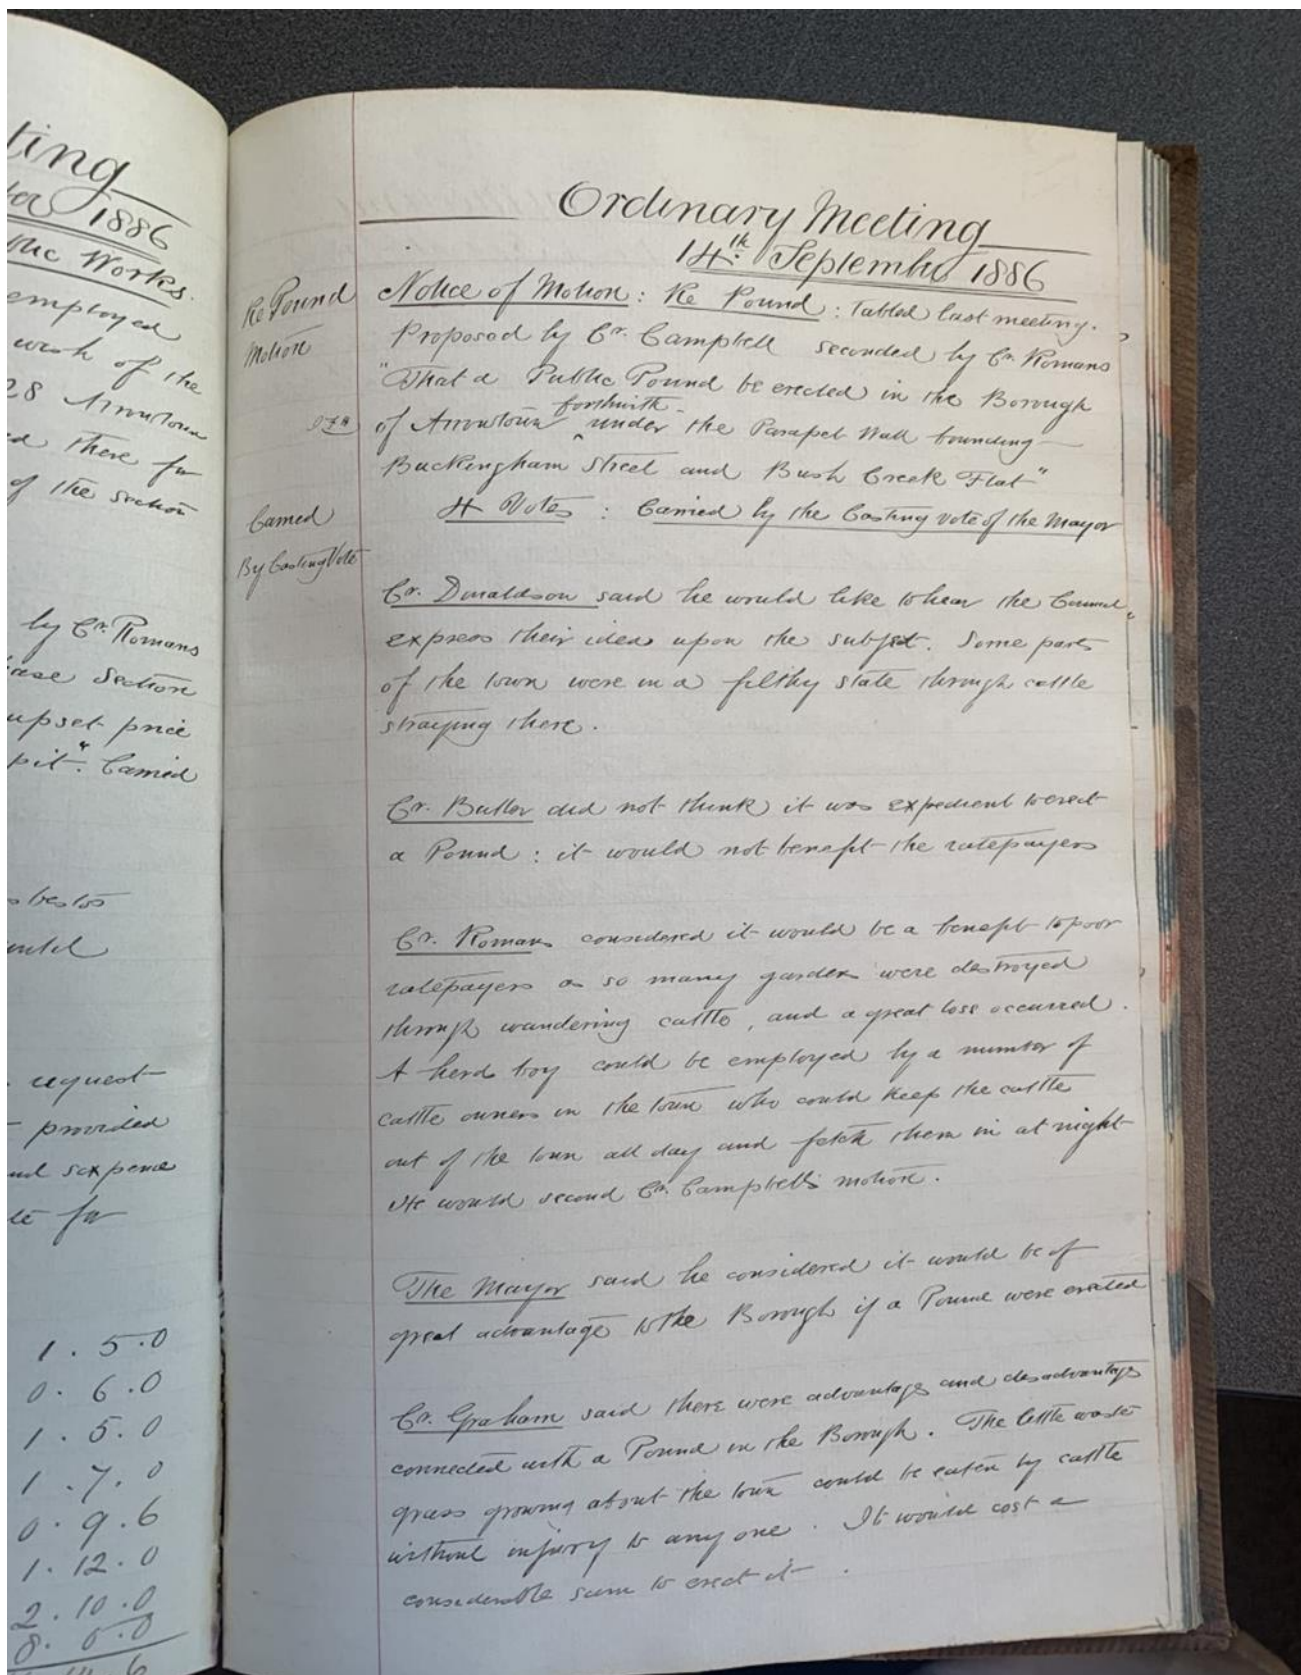 ting
1886
Works.
employed
wish of the
28 Arrowtown
ed there for
of the section
by Cr. Romans
ase section
upset price
pit". Carried
request
provided
sixpence
te for
1 . 5 . 0
0 . 6 . 0
1 . 5 . 0
1 . 7 . 0
0 . 9 . 6
1 . 12 . 0
2 . 10 . 0
8 . 0 . 0
Ordinary Meeting
14th. September 1886
Re Pound
Motion
Notice of Motion : Re Pound : Tabled last meeting.
Proposed by Cr. Campbell seconded by Cr. Romans
"That a Public Pound be erected in the Borough
of Arrowtown forthwith under the Parapet Wall bounding
Buckingham Street and Bush Creek Flat"
Carried
By Casting Vote
4 Votes : Carried by the Casting vote of the Mayor
Cr. Donaldson said he would like to hear the Council
express their ideas upon the subject. Some parts
of the town were in a filthy state through cattle
straying there.
Cr. Butler did not think it was expedient to erect
a Pound : it would not benefit the ratepayers
Cr. Romans considered it would be a benefit to poor
ratepayers as so many gardens were destroyed
through wandering cattle, and a great loss occurred.
A herd boy could be employed by a number of
cattle owners in the town who could keep the cattle
out of the town all day and fetch them in at night
He would second Cr. Campbell's motion.
The Mayor said he considered it would be of
great advantage to the Borough if a Pound were erected
Cr. Graham said there were advantages and disadvantages
connected with a Pound in the Borough. The little waste
grass growing about the town could be eaten by cattle
without injury to any one. It would cost a
considerable sum to erect it.